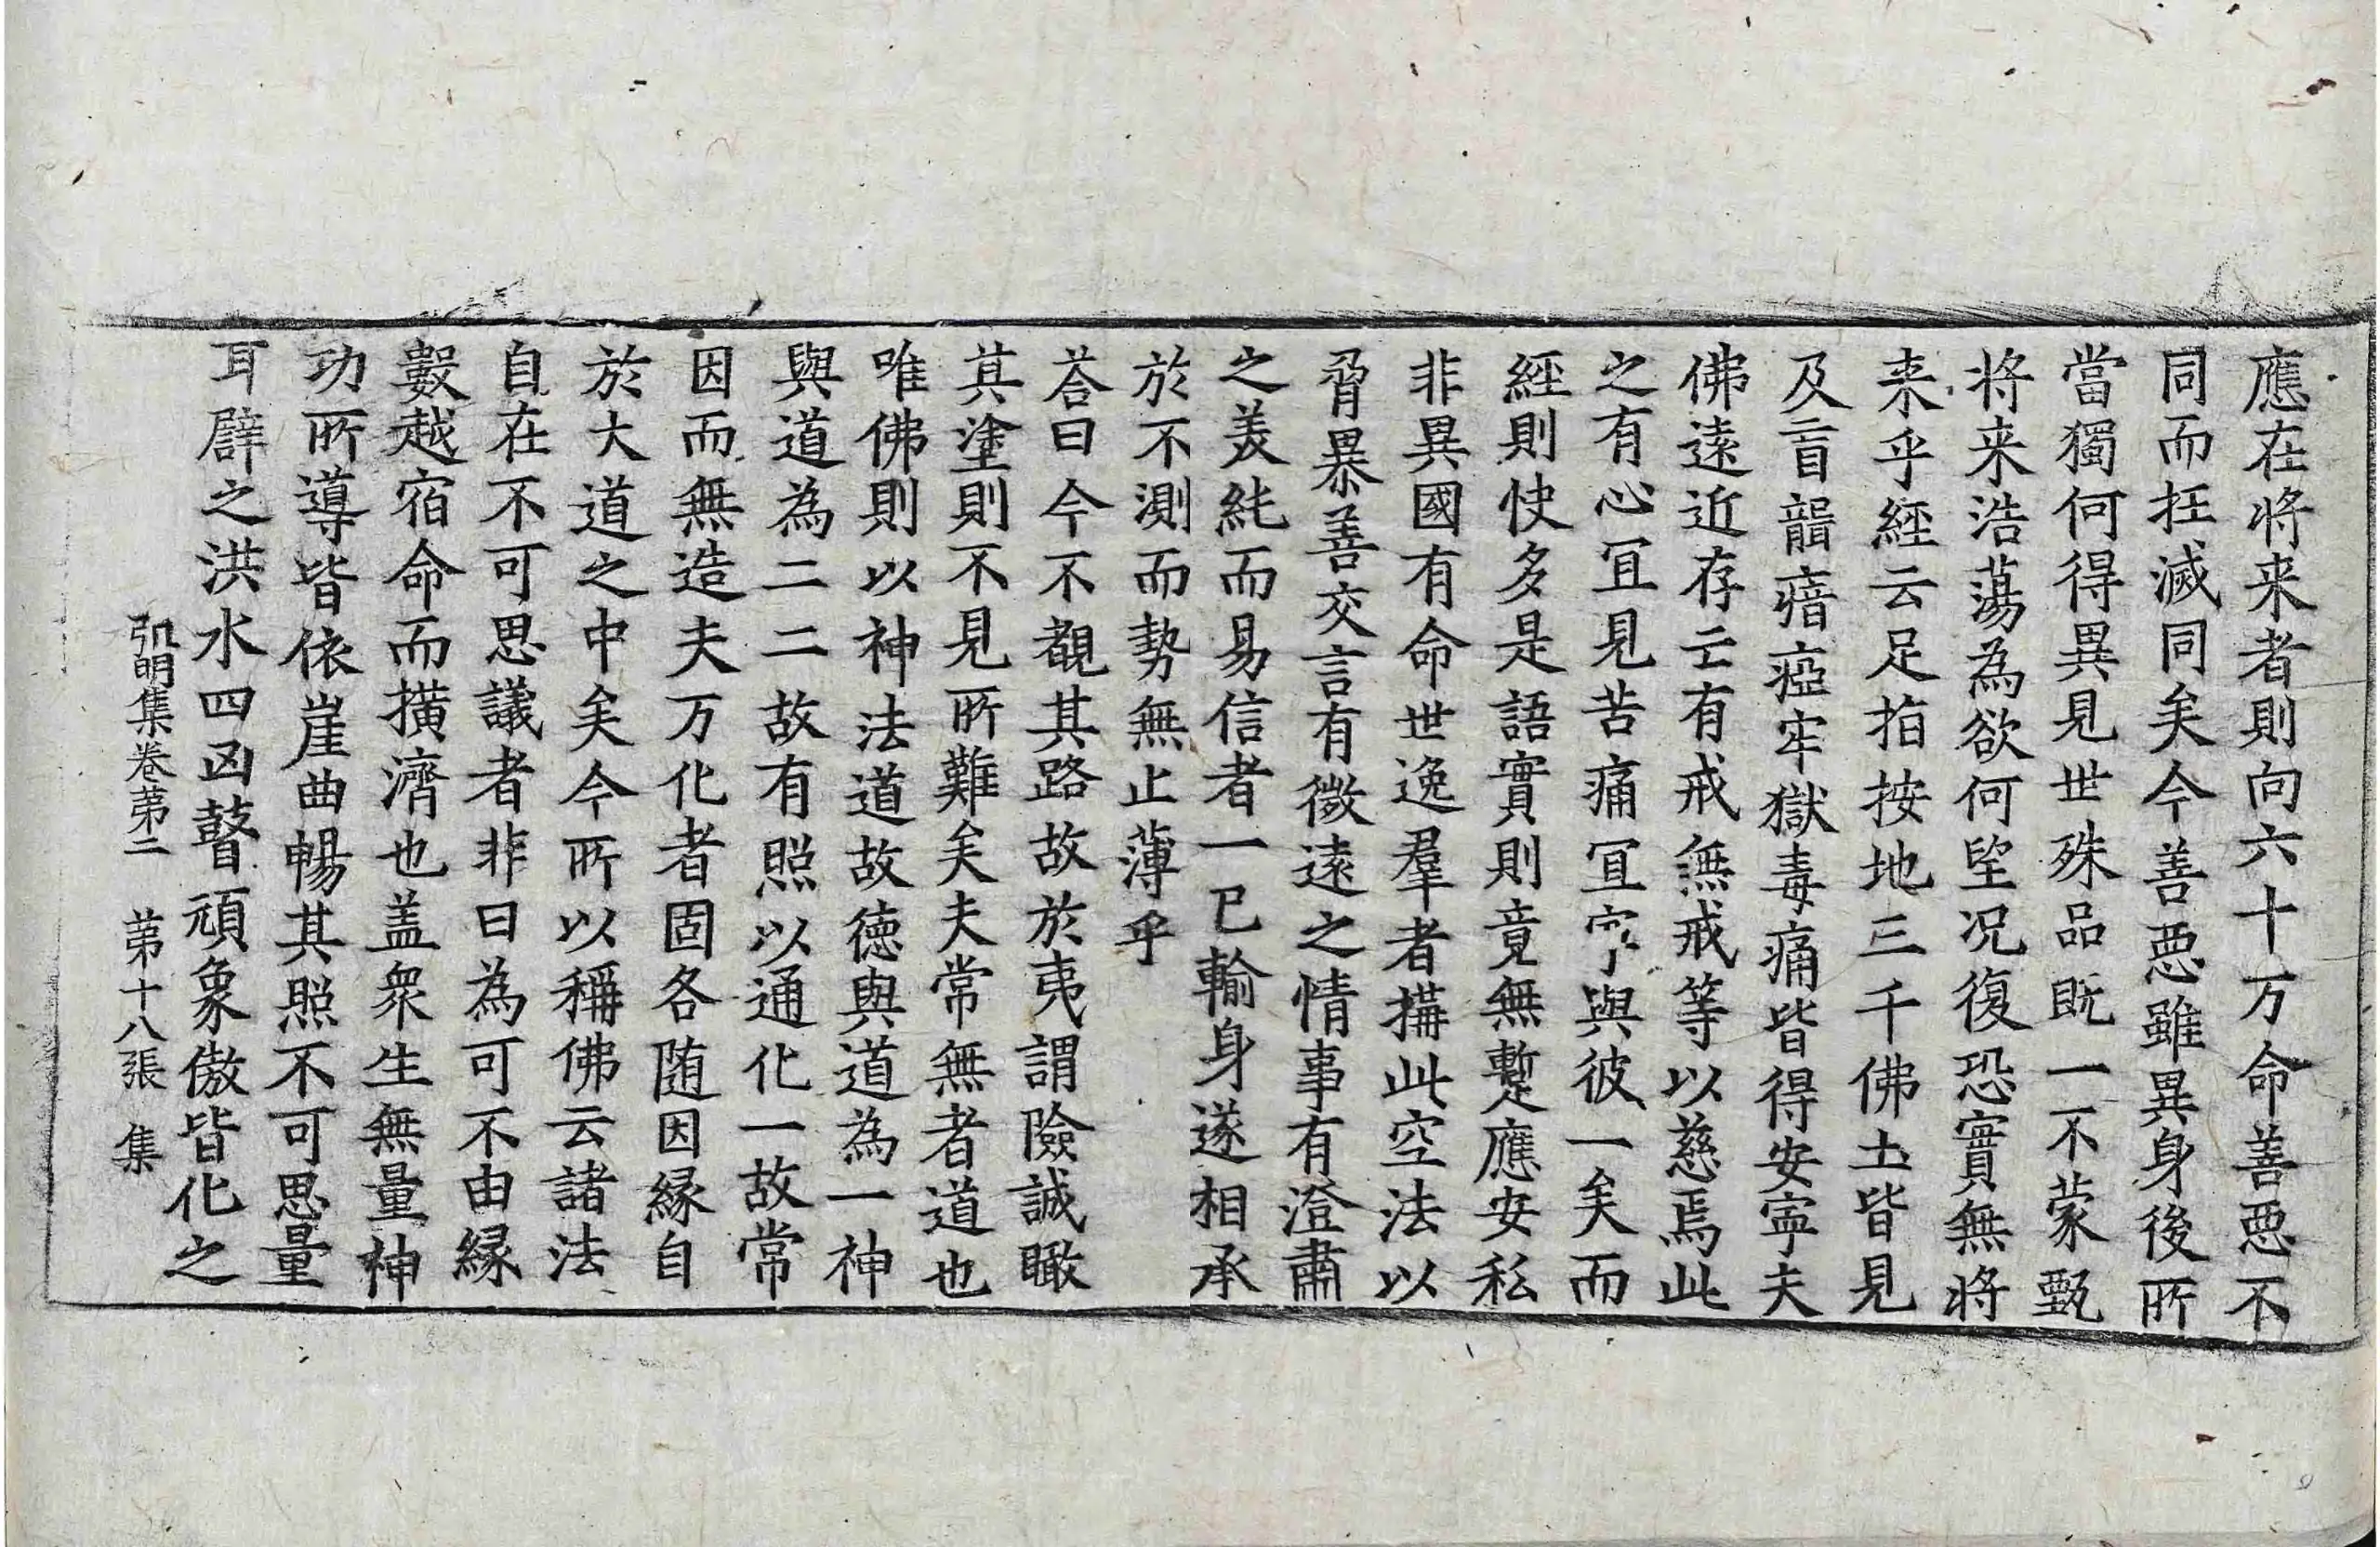 應在將来者則向六十万命善惡不
同而抂滅同矣今善惡雖異身後所
當獨何得異見世殊品既一不蒙甄
将来浩蕩為欲何望况復恐實無將
来乎經云足指按地三千佛土皆見
及盲聾瘖瘂牢獄毒痛皆得安寧夫
佛遠近存亡有戒無戒等以慈焉此
之有心冝見苦痛冝寧與彼一矣而
經則快多是語實則竟無蹔應安私
非異國有命世逸羣者搆此空法以
脅暴善交言有微遠之情事有澄肅
之美純而易信者一已輸身遂相承
於不測而勢無止薄乎
荅曰今不覩其路故於夷謂險誠瞰
其塗則不見所難矣夫常無者道也
唯佛則以神法道故德與道為一神
與道為二二故有照以通化一故常
因而無造夫万化者固各随因縁自
於大道之中矣今所以稱佛云諸法
自在不可思議者非曰為可不由縁
數越宿命而撗濟也盖衆生無量神
功所導皆依崖曲暢其照不可思量
耳辟之洪水四凶瞽頑象傲皆化之
弘明集卷苐二　苐十八張　集